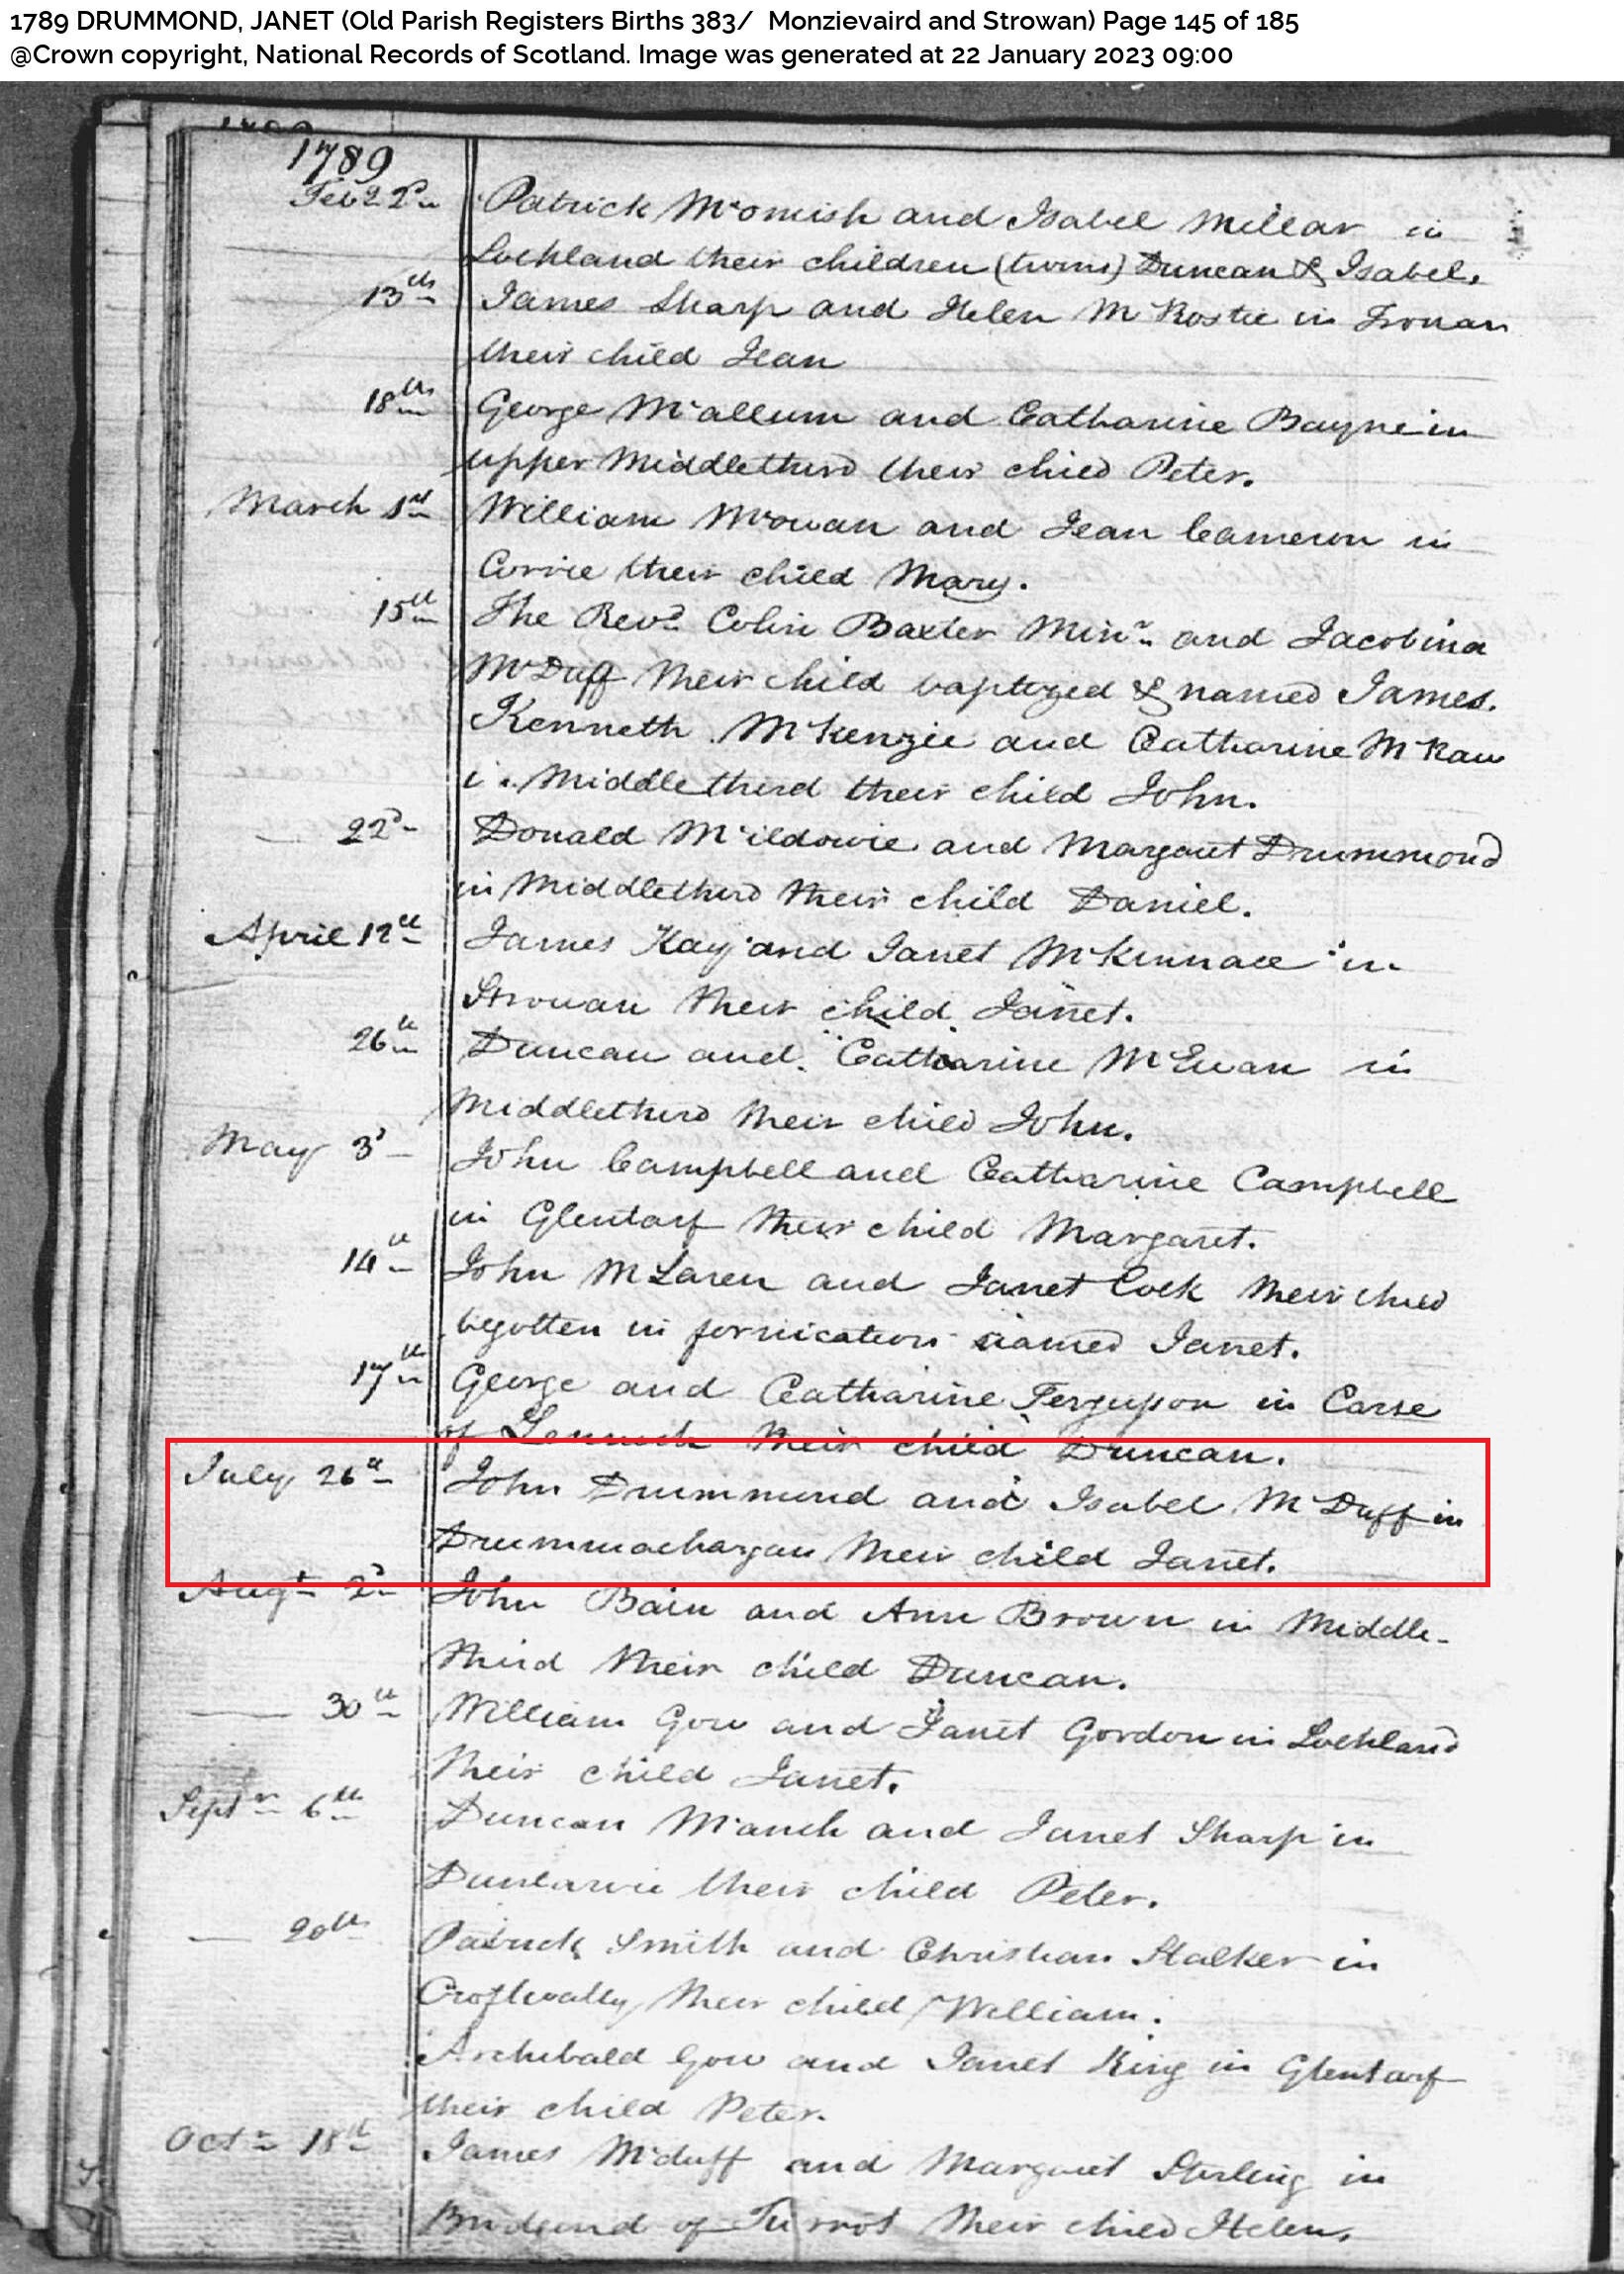 1789 DRUMMOND, JANET (Old Parish Registers Births 383/ Monzievaird and Strowan) Page 145 of 185
@Crown copyright, National Records of Scotland. Image was generated at 22 January 2023 09:00
1789
Feb 2d Patrick McOmish and Isabel Millar in
Lochland their children (twins) Duncan & Isabel.
13th James Sharp and Helen McRostie in Trowan
their child Jean
18th George McAllum and Catharine Bayne in
upper Middlethird their child Peter.
March 1st William McOwan and Jean Cameron in
Corrie their child Mary.
15th The Revd Colin Baxter Minr and Jacobina
McDuff their child baptized & named James.
Kenneth McKenzie and Catharine McRaw
in Middlethird their child John.
22d Donald McIldowie and Margaret Drummond
in Middlethird their child Daniel.
April 12th James Kay and Janet McKinnace in
Strowan their child Janet.
26th Duncan and Catharine McEwan in
Middlethird their child John.
May 3d John Campbell and Catharine Campbell
in Glentarf their child Margaret.
14th John McLaren and Janet Cock their child
begotten in fornication named Janet.
17th George and Catharine Ferguson in Carse
of their child Duncan.
July 26th John Drummond and Isabel McDuff in
Drummachargan their child Janet.
Augt 2d John Bain and Ann Brown in Middle-
third their child Duncan.
30th William Gow and Janet Gordon in Lochland
their child Janet.
Septr 6th Duncan and Janet Sharp in
their child Peter.
20th Patrick Smith and Christian Stalker in
their child William.
Archibald Gow and Janet King in Glentarf
their child Peter.
Octr 18th James McDuff and Margaret Sterling in
of Turrot their child Helen.